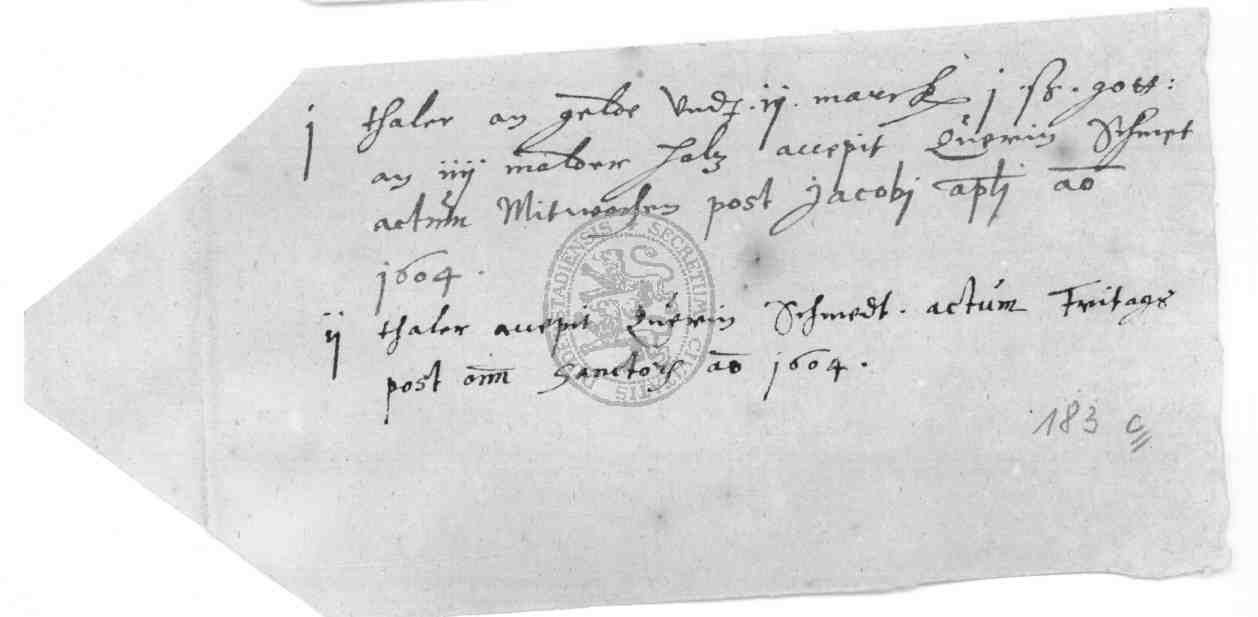 j thaler an gelde Vnd .ij. marck j ß. gott:
an iiij malder holz accepit Querin Schmet
actum Mitwochen post Jacobj apłi ao
1604.
ij thaler accepit Querin Schmedt. actum Fritags
post oim Sanctor ao 1604.
183 c
SECRETUM CIVITATIS